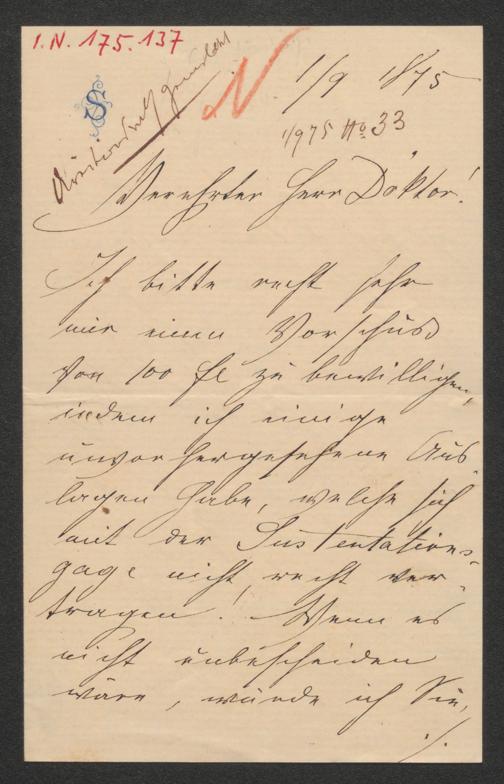 I.N. 175.137
1/9 1875
1/975 No 33
Verehrter Herr Doktor!
Ich bitte recht sehr
mir einen Vorschuß
von 100 fl zu bewilligen,
indem ich einige
unvorhergesehene Aus
lagen habe, welche sich
mit der Sustentations-
gage nicht recht ver-
tragen! Wenn es
nicht unbescheiden
wäre, würde ich Sie,
./.